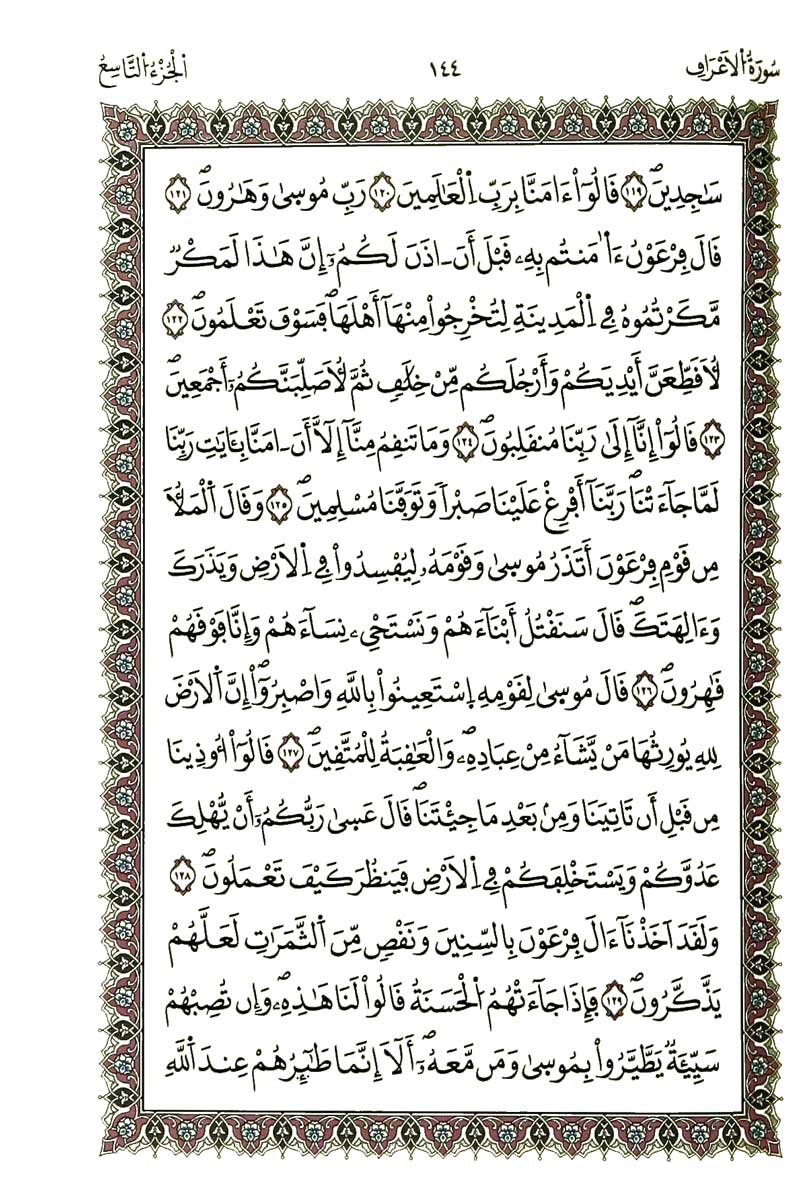 سُورَةُ الَاعْرَافِ ١٤٤ الْجُزْءُ التَّاسِعُ
سَٰجِدِينَۖ ۝١١٩ فَالُوٓاْ ءَامَنَّا بِرَبِّ اِ۬لْعَٰلَمِينَ ۝١٢٠ رَبِّ مُوسۭيٰ وَهَٰرُونَۖ ۝١٢١
فَالَ فِرْعَوْنُ ءَاٰ۬مَنتُم بِهِۦ فَبْلَ أَنَ اٰذَنَ لَكُمُۥٓۖ إِنَّ هَٰذَا لَمَكْرٞ
مَّكَرْتُمُوهُ فِے اِ۬لْمَدِينَةِ لِتُخْرِجُواْ مِنْهَآ أَهْلَهَاۖ فَسَوْفَ تَعْلَمُونَۖ ۝١٢٢
لُأَفَطِّعَنَّ أَيْدِيَكُمْ وَأَرْجُلَكُم مِّنْ خِلَٰفٖ ثُمَّ لُأَصَلِّبَنَّكُمُۥٓ أَجْمَعِينَۖ
۝١٢٣ فَالُوٓاْ إِنَّآ إِلَىٰ رَبِّنَا مُنفَلِبُونَۖ ۝١٢٤ وَمَا تَنفِمُ مِنَّآ إِلَّآ أَنَ اٰمَنَّا بِـَٔايَٰتِ رَبِّنَا
لَمَّا جَآءَتْنَاۖ رَبَّنَآ أَفْرِغْ عَلَيْنَا صَبْراٗ وَتَوَفَّنَا مُسْلِمِينَۖ ۝١٢٥ وَفَالَ اَ۬لْمَلَأُ
مِن فَوْمِ فِرْعَوْنَ أَتَذَرُ مُوسۭيٰ وَفَوْمَهُۥ لِيُفْسِدُواْ فِے اِ۬لَارْضِ وَيَذَرَكَ
وَءَالِهَتَكَۖ فَالَ سَنَفْتُلُ أَبْنَآءَهُمْ وَنَسْتَحْيِۦ نِسَآءَهُمْ وَإِنَّا فَوْفَهُمْ
فَٰهِرُونَۖ ۝١٢٦ فَالَ مُوسۭيٰ لِفَوْمِهِ اِ۪سْتَعِينُواْ بِاللَّهِ وَاصْبِرُوٓاْۖ إِنَّ اَ۬لَارْضَ
لِلهِ يُورِثُهَا مَنْ يَّشَآءُ مِنْ عِبَادِهِۦۖ وَالْعَٰفِبَةُ لِلْمُتَّفِينَۖ ۝١٢٧ فَالُوٓاْ أُوذِينَا
مِن فَبْلِ أَن تَاتِيَنَا وَمِنۢ بَعْدِ مَا جِيْتَنَاۖ فَالَ عَسۭيٰ رَبُّكُمُۥٓ أَنْ يُّهْلِكَ
عَدُوَّكُمْ وَيَسْتَخْلِفَكُمْ فِے اِ۬لَارْضِ فَيَنظُرَ كَيْفَ تَعْمَلُونَۖ ۝١٢٨
وَلَفَدَ اَخَذْنَآ ءَالَ فِرْعَوْنَ بِالسِّنِينَ وَنَفْصٖ مِّنَ اَ۬لثَّمَرَٰتِ لَعَلَّهُمْ
يَذَّكَّرُونَۖ ۝١٢٩ فَإِذَا جَآءَتْهُمُ اُ۬لْحَسَنَةُ فَالُواْ لَنَا هَٰذِهِۦۖ وَإِن تُصِبْهُمْ
سَيِّئَةٞ يَطَّيَّرُواْ بِمُوسۭيٰ وَمَن مَّعَهُۥٓۖ أَلَآ إِنَّمَا طَٰٓئِرُهُمْ عِندَ اَ۬للَّهِ